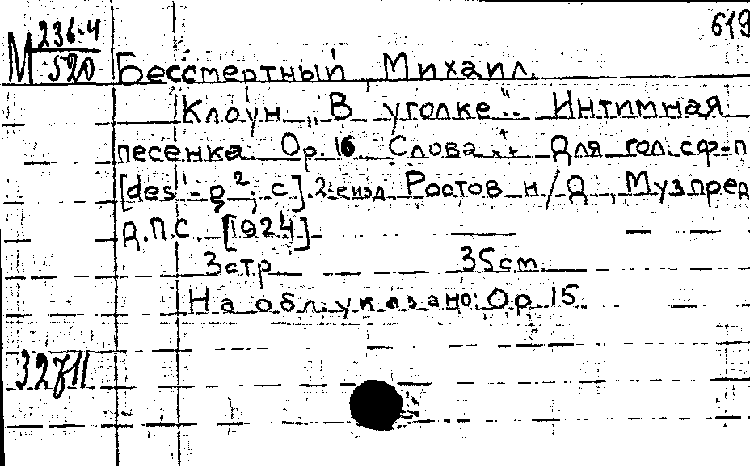 М 236-4/520
619
Бессмертный, Михаил.
Клоун „В уголке". Интимная
песенка. Ор. 16. Слова . Для гол. с ф-п
[des¹-g²; c]. 2-е изд. Ростов н/Д, Музпред
Д.П.С. [1924]
3 стр. 35 cm.
На обл. указано: Ор. 15.
32711